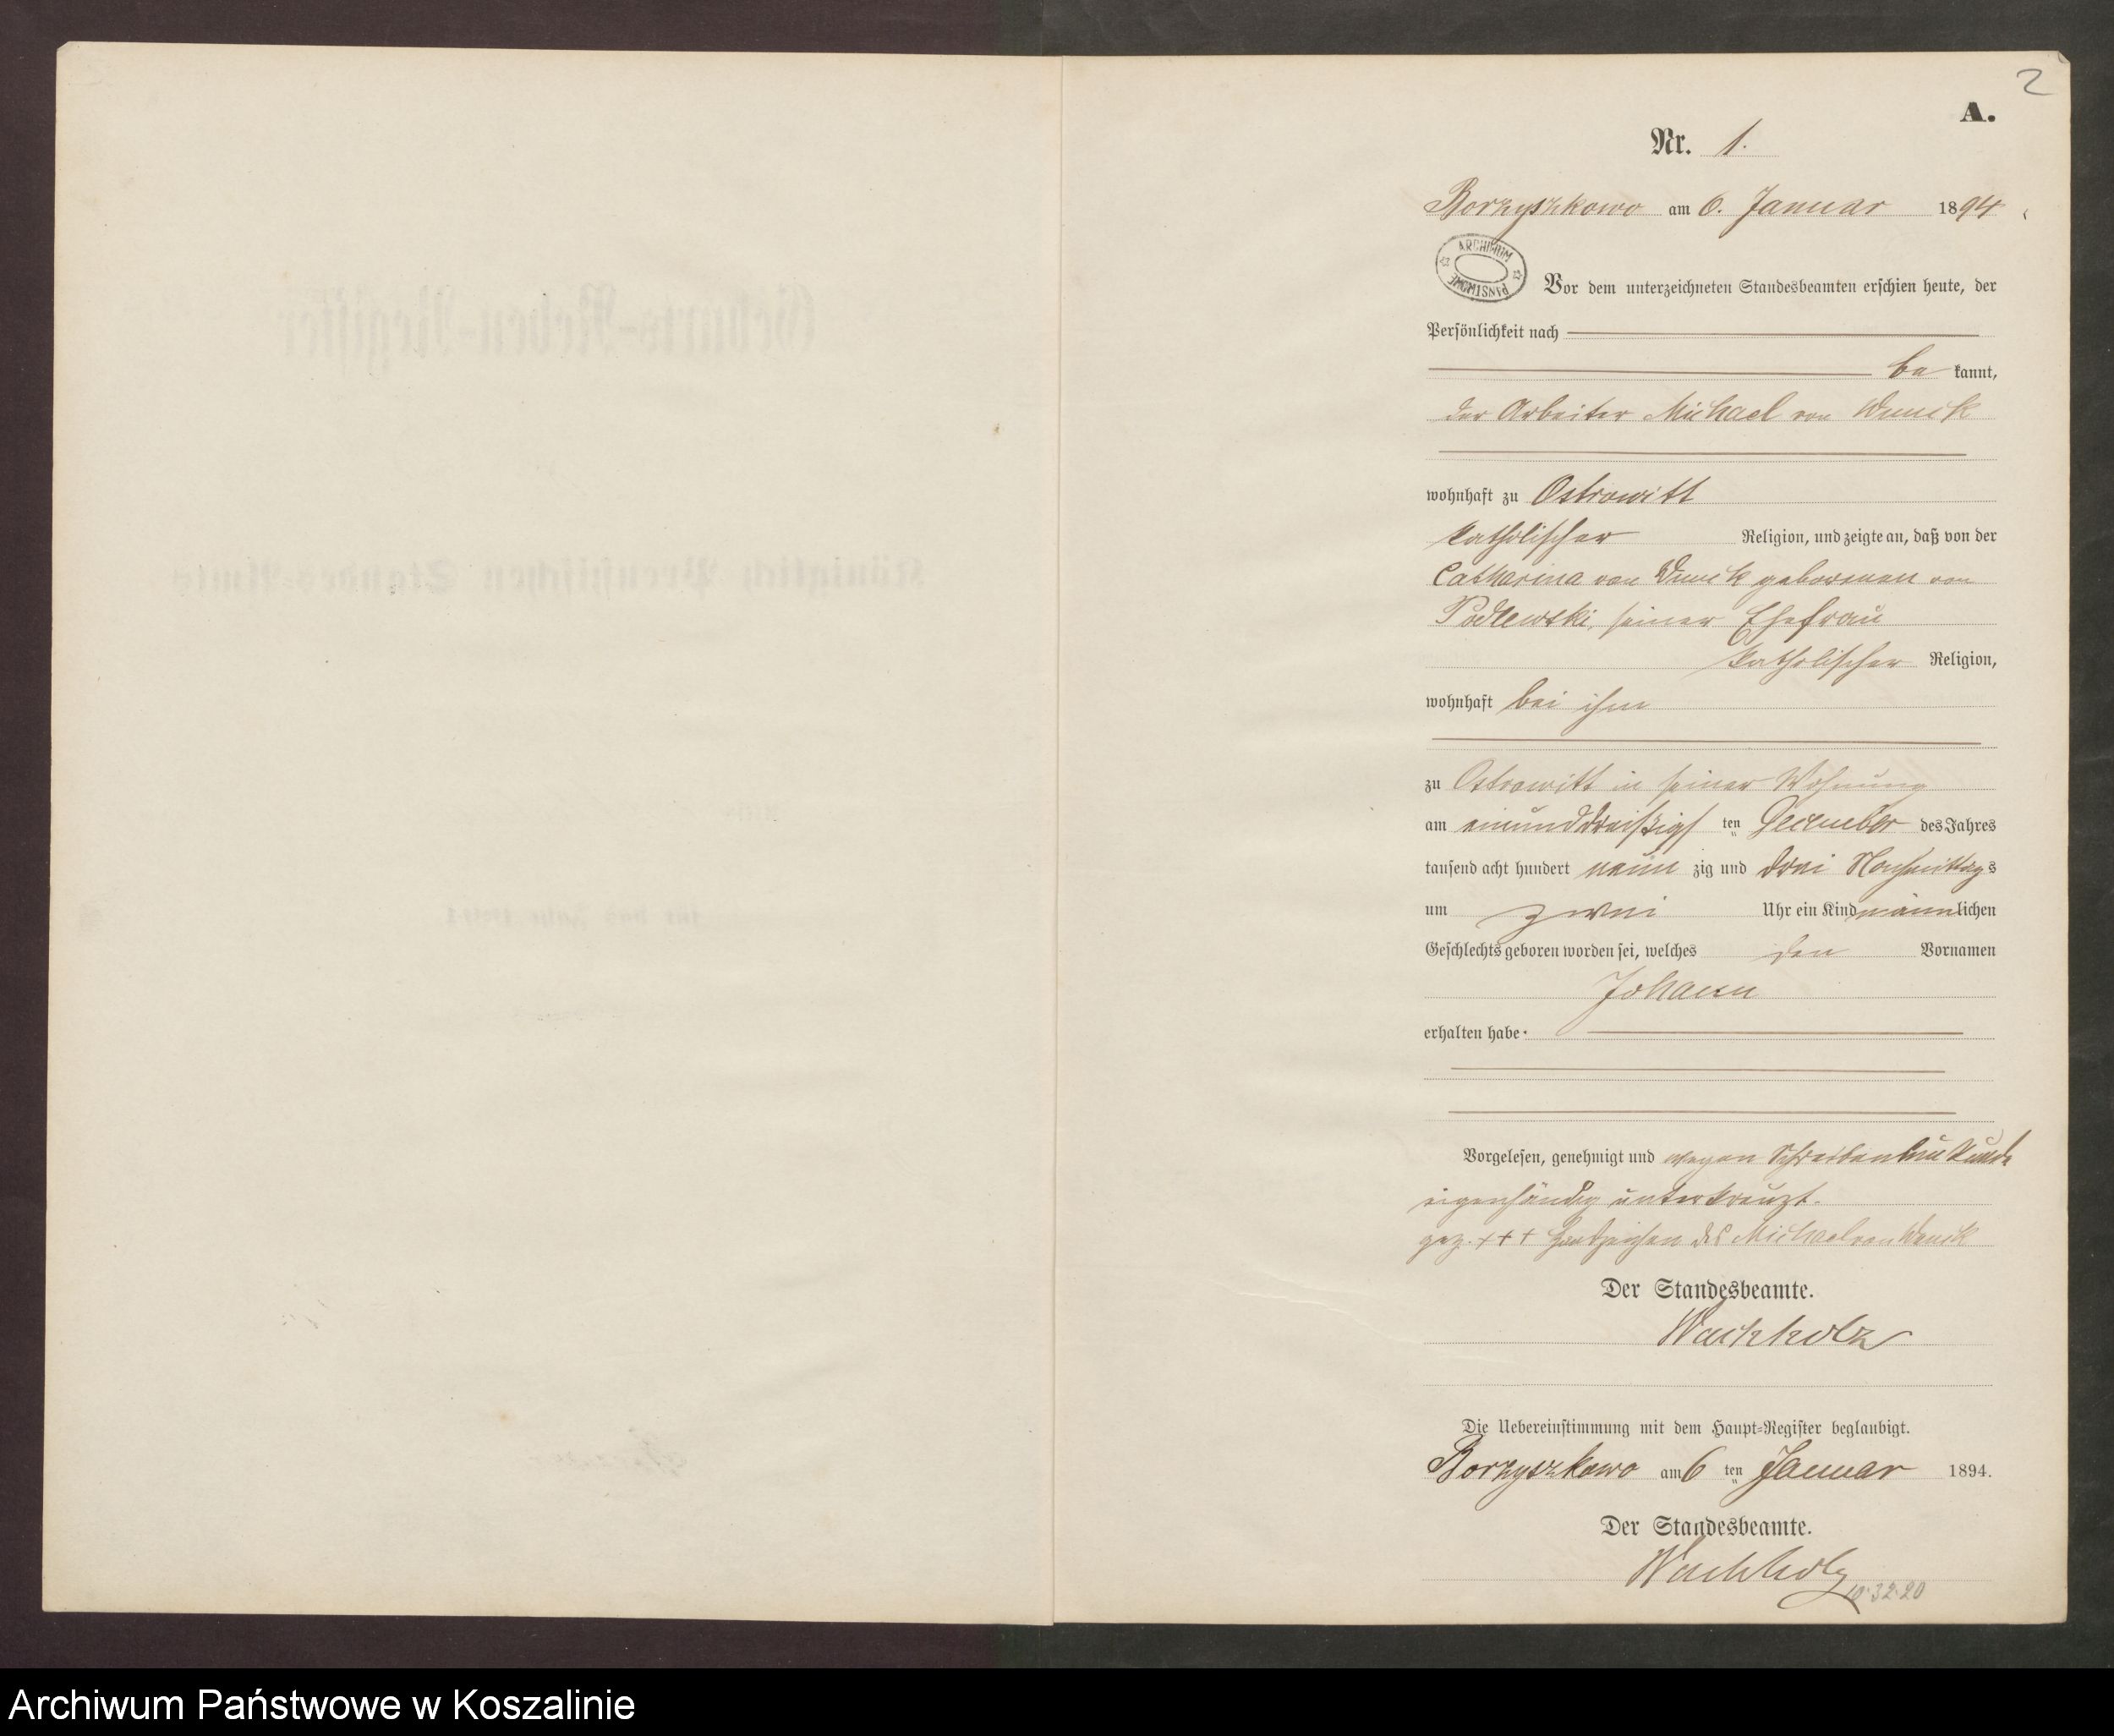 2
A.
Nr. 1.
Borzyszkowo am 6. Januar 1894
ARCHIWUM PAŃSTWOWE
Vor dem unterzeichneten Standesbeamten erschien heute, der
Persönlichkeit nach
be kannt,
der Arbeiter Michael von
wohnhaft zu Ostrowitt
katholischer Religion, und zeigte an, daß von der
Catharina von geborenen von
Podlewski, seiner Ehefrau
katholischer Religion,
wohnhaft bei ihm
zu Ostrowitt in seiner Wohnung
am einunddreißigs ten December des Jahres
tausend acht hundert neun zig und drei Nachmittags
um zwei Uhr ein Kind männlichen
Geschlechts geboren worden sei, welches den Vornamen
Johann
erhalten habe.
Vorgelesen, genehmigt und wegen Schreibensunkunde
eigenhändig unterkreuzt.
gez. +++ Handzeichen des Michael von
Der Standesbeamte.
Wachholz
Die Uebereinstimmung mit dem Haupt-Register beglaubigt.
Borzyszkowo am 6 ten Januar 1894.
Der Standesbeamte.
Wachholz
10.32.20
Archiwum Państwowe w Koszalinie